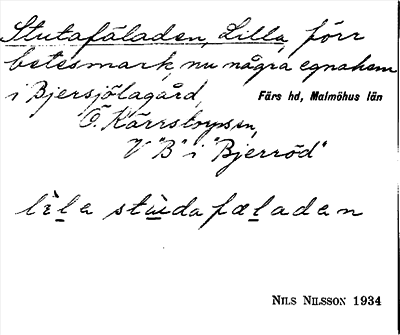 Stutafäladen, Lilla, förr
betesmark, nu några egnahem
i Bjersjölagård, Färs hd, Malmöhus län
Ö. Kärrstorp sn,
V "B" i "Bjerröd"
lìla stùdafæladen
NILS NILSSON 1934